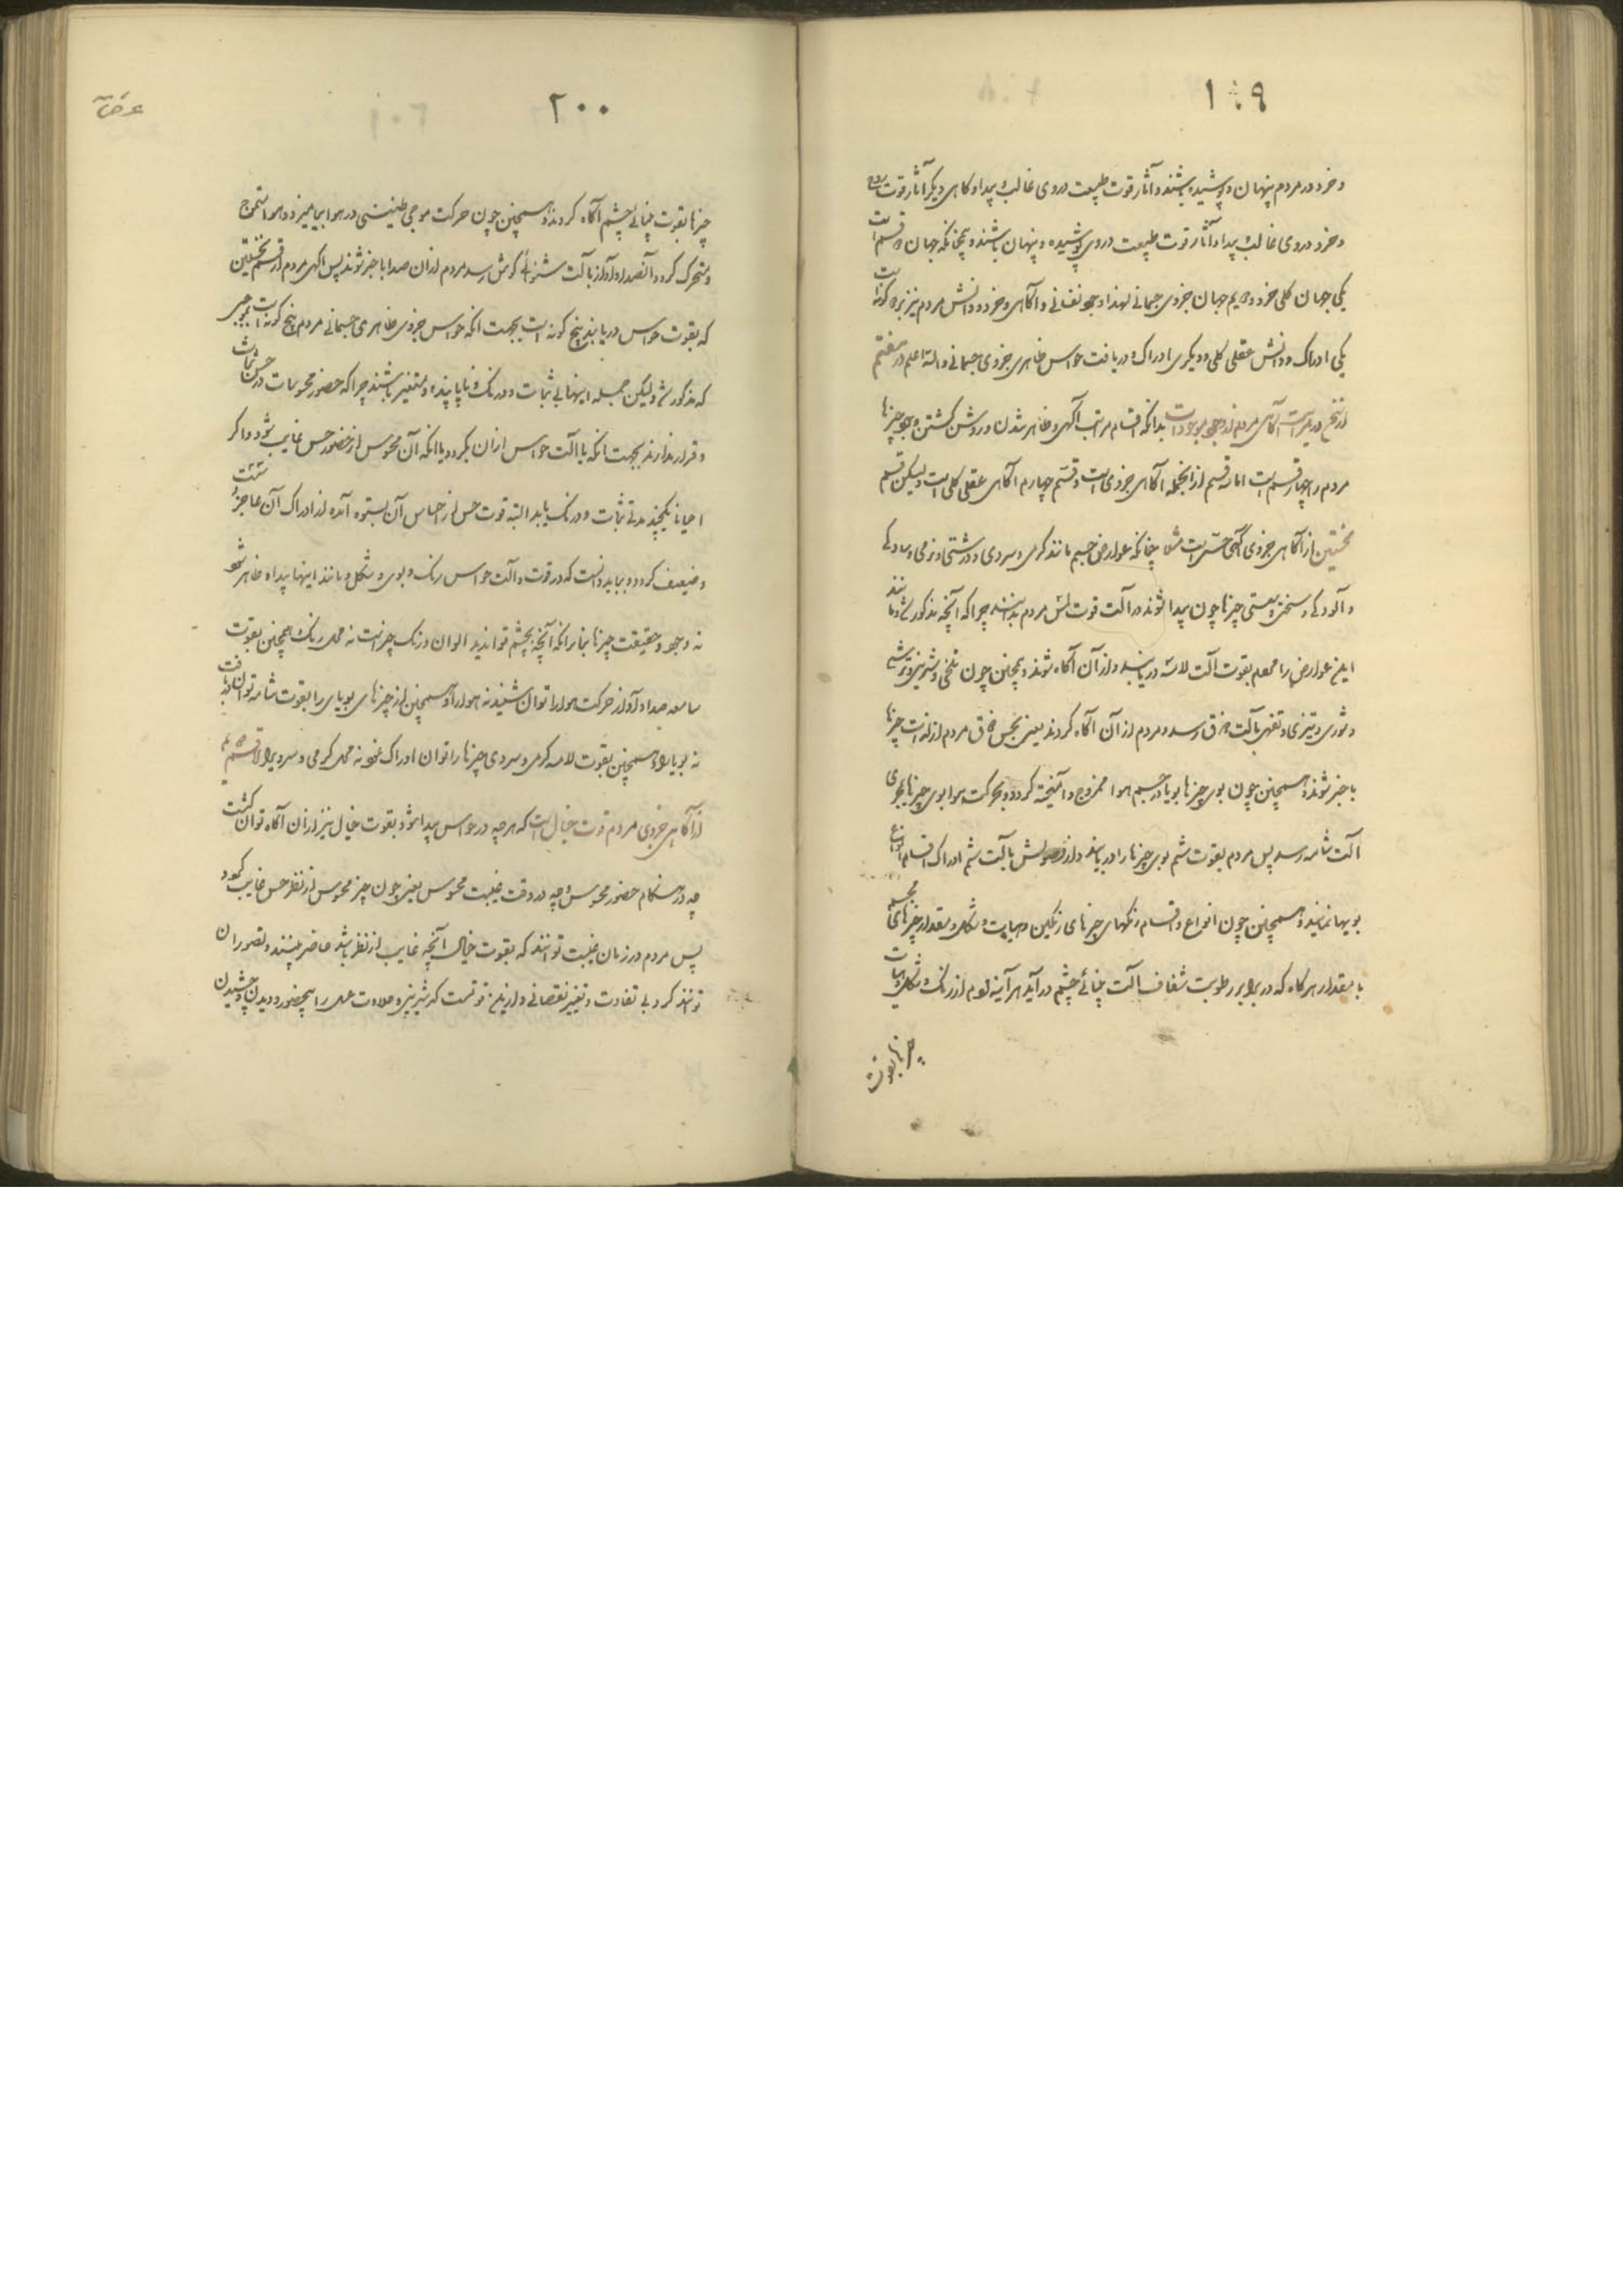 ١٩٩
و خرد در مردم پنهان و پوشیده باشند و آثار قوت طبیعت در وی غالب و پیدا و کاهی دیگر آثار قوت روح
و خرد در وی غالب و پیدا و آثار قوت طبیعت در وی پوشیده و پنهان باشند و همچنانکه جهان دو قسم است
یکی جهان کلی خرد و دویم جهان جزوی جسمانی لهذا وجود نفسانی و آکاهی و خرد و دانش مردم نیز بر دو کونه است
یکی ادراک و دانش عقلی کلی و دیکری ادراک و دریافت حواس ظاهری جزوی جسمانی والله اعلم در هفتم
از شرح در مراتب آکاهی مردم از وجود موجودات بدانکه اقسام مراتب آکهی و ظاهر شدن و روشن کشتن وجود چیزها
مردم را چهار قسم است اما سه قسم از آنجمله آکاهی جزوی است و قسم چهارم آکاهی عقلی کلی است ولیکن قسم
نخستین از آکاهی جزوی آکهی حسی است مثلا چنانکه عوارض جسم مانند کرمی و سردی و درشتی و نرمی و سادکی
و آلودکی و سختی و سستی چیزها چون پیدا شوند در آلت قوت لمس مردم بدانند چرا که آنچه مذکور شد و مانند
این عوارض را معلم بقوت آلت لامسه دریابند و از آن آکاه شوند و همچنین چون تلخی و شیرینی و ترشی
و شوری و تیزی و تفهی بآلت ذوق رسد و مردم از آن آکاه کردند یعنی بحس ذوق مردم از لذات چیزها
با خبر شوند و همچنین چون بوی چیزها بویا در جسم هوا ممزوج و آمیخته کردد و بحرکت هوا بوی چیزها بمجری
آلت شامه رسد پس مردم بقوت شم بوی چیزها را دریابند و از وصولش بآلت شم ادراک اقسام انواع
بویها نمایند و همچنین چون انواع و اقسام رنکهای چیزهای رنکین و هیات و شکل و مقدار چیزهای مجسم
با مقدار هرکاه که در برابر رطوبت شفاف آلت بینائی چشم در آید هر آینه مردم از رنک و شکل و هیات
چیزها بقوت
٢٠٠
چیزها بقوت بینائی چشم آکاه کردند و همچنین چون حرکت موجی طنینی در هوا بیامیزد و هوا متموج
و متحرک کردد و آنصدا و آواز بآلت شنوائی کوش رسد مردم از آن صدا با خبر شوند پس آکهی مردم از قسم نخستین
که بقوت حواس دریابند پنج کونه است بجهت آنکه حواس جزوی ظاهری جسمانی مردم پنج کونه است بموجبی
که مذکور شد ولیکن جمله اینها بی ثبات و درنک و ناپاینده و متغیر باشند چرا که حضور محسوسات در حس ثبات
و قرار ندارند بجهت آنکه یا آلت حواس از آن بکردد یا آنکه آن محسوس از حضور حس غایب شود و اکر
احیانا یکچند مدتی ثبات و درنک یابد البته قوت حس از احساس آن بستوه آمده از ادراک آن عاجز و سست
و ضعیف کردد و بباید دانست که در قوت و آلت حواس رنک و بوی و شکل و مانند اینها پیدا و ظاهر شود
نه وجود و حقیقت چیزها بنا بر آنکه آنچه بچشم تواند دید الوان و رنک چیز است نه محل رنک و همچنین بقوت
سامعه صدا و آواز حرکت هوا را توان شنید نه هوا را و همچنین از چیزهای بویای را بقوت شامه توان دریافت
نه بویا را و همچنین بقوت لامسه کرمی و سردی چیزها را توان ادراک نمود نه محل کرمی و سردی را قسم دویم
از آکاهی جزوی مردم قوت خیال است که هرچه در حواس پیدا شود بقوت خیال نیز از آن آکاه توان کشت
چه در هنکام حضور محسوس و چه در وقت غیبت محسوس یعنی چون چیز محسوس از نظر حس غایب کردد
پس مردم در زمان غیبت توانند که بقوت خیال آنچه غایب از نظر باشد حاضر بینند و تصور آن
توانند کرد بی تفاوت و تغییر نقصانی و از اینروست که شیرینی و حلاوت عسل را بیحضور و دیدن و چشیدن